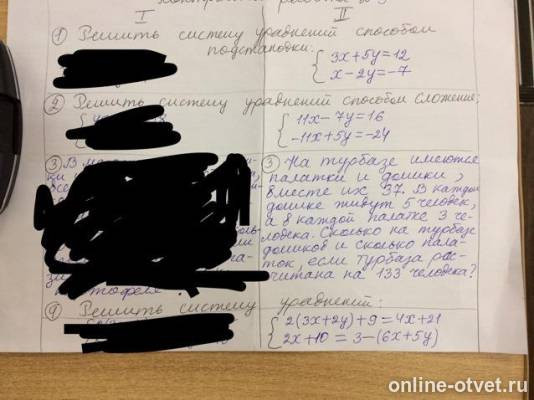 I
II
① Решить систему уравнений способом
подстановки:
{ 3x+5y=12
x-2y=-7
② Решить систему уравнений способом сложения:
{ 11x-7y=16
-11x+5y=-24
③ В
③ На турбазе имеются
палатки и домики,
вместе их 37. В каждом
домике живут 5 человек,
а в каждой палатке 3 че-
ловека. Сколько на турбазе
домиков и сколько пала-
ток, если турбаза рас-
читана на 133 человека?
④ Решить систему уравнений:
{ 2(3x+2y)+9=4x+21
2x+10=3-(6x+5y)
online-otvet.ru